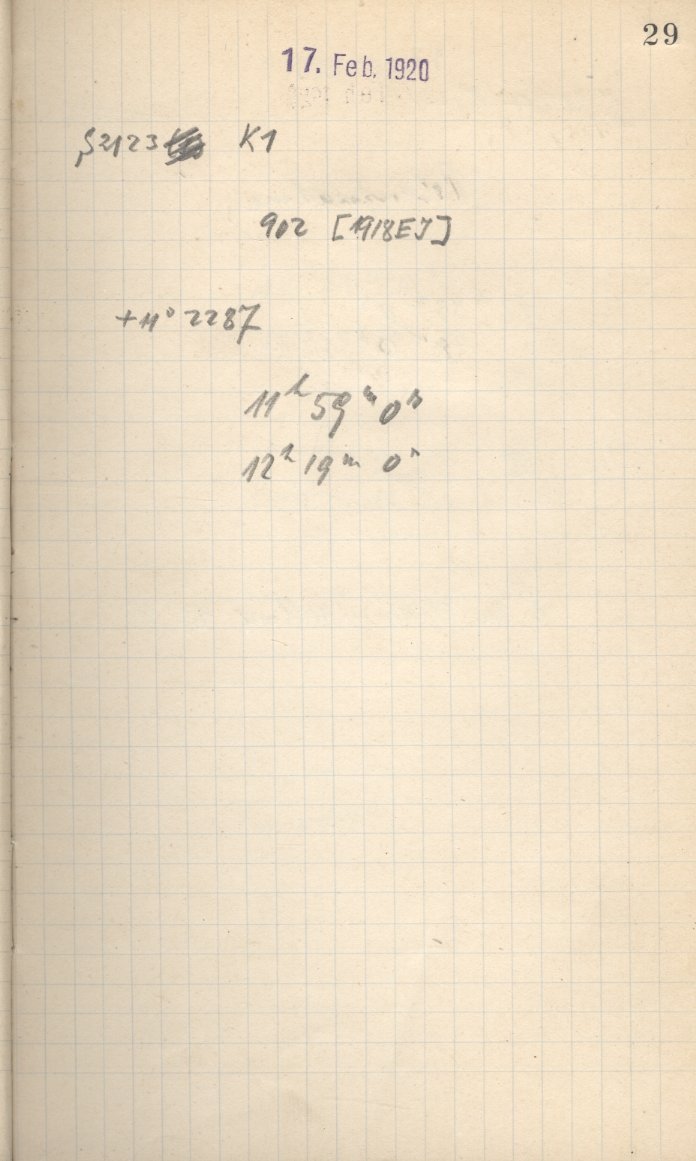 29
17. Feb. 1920
S2123 K1
902 [1918EJ]
+11° 2287
11h 59m 0s
12h 19m 0s